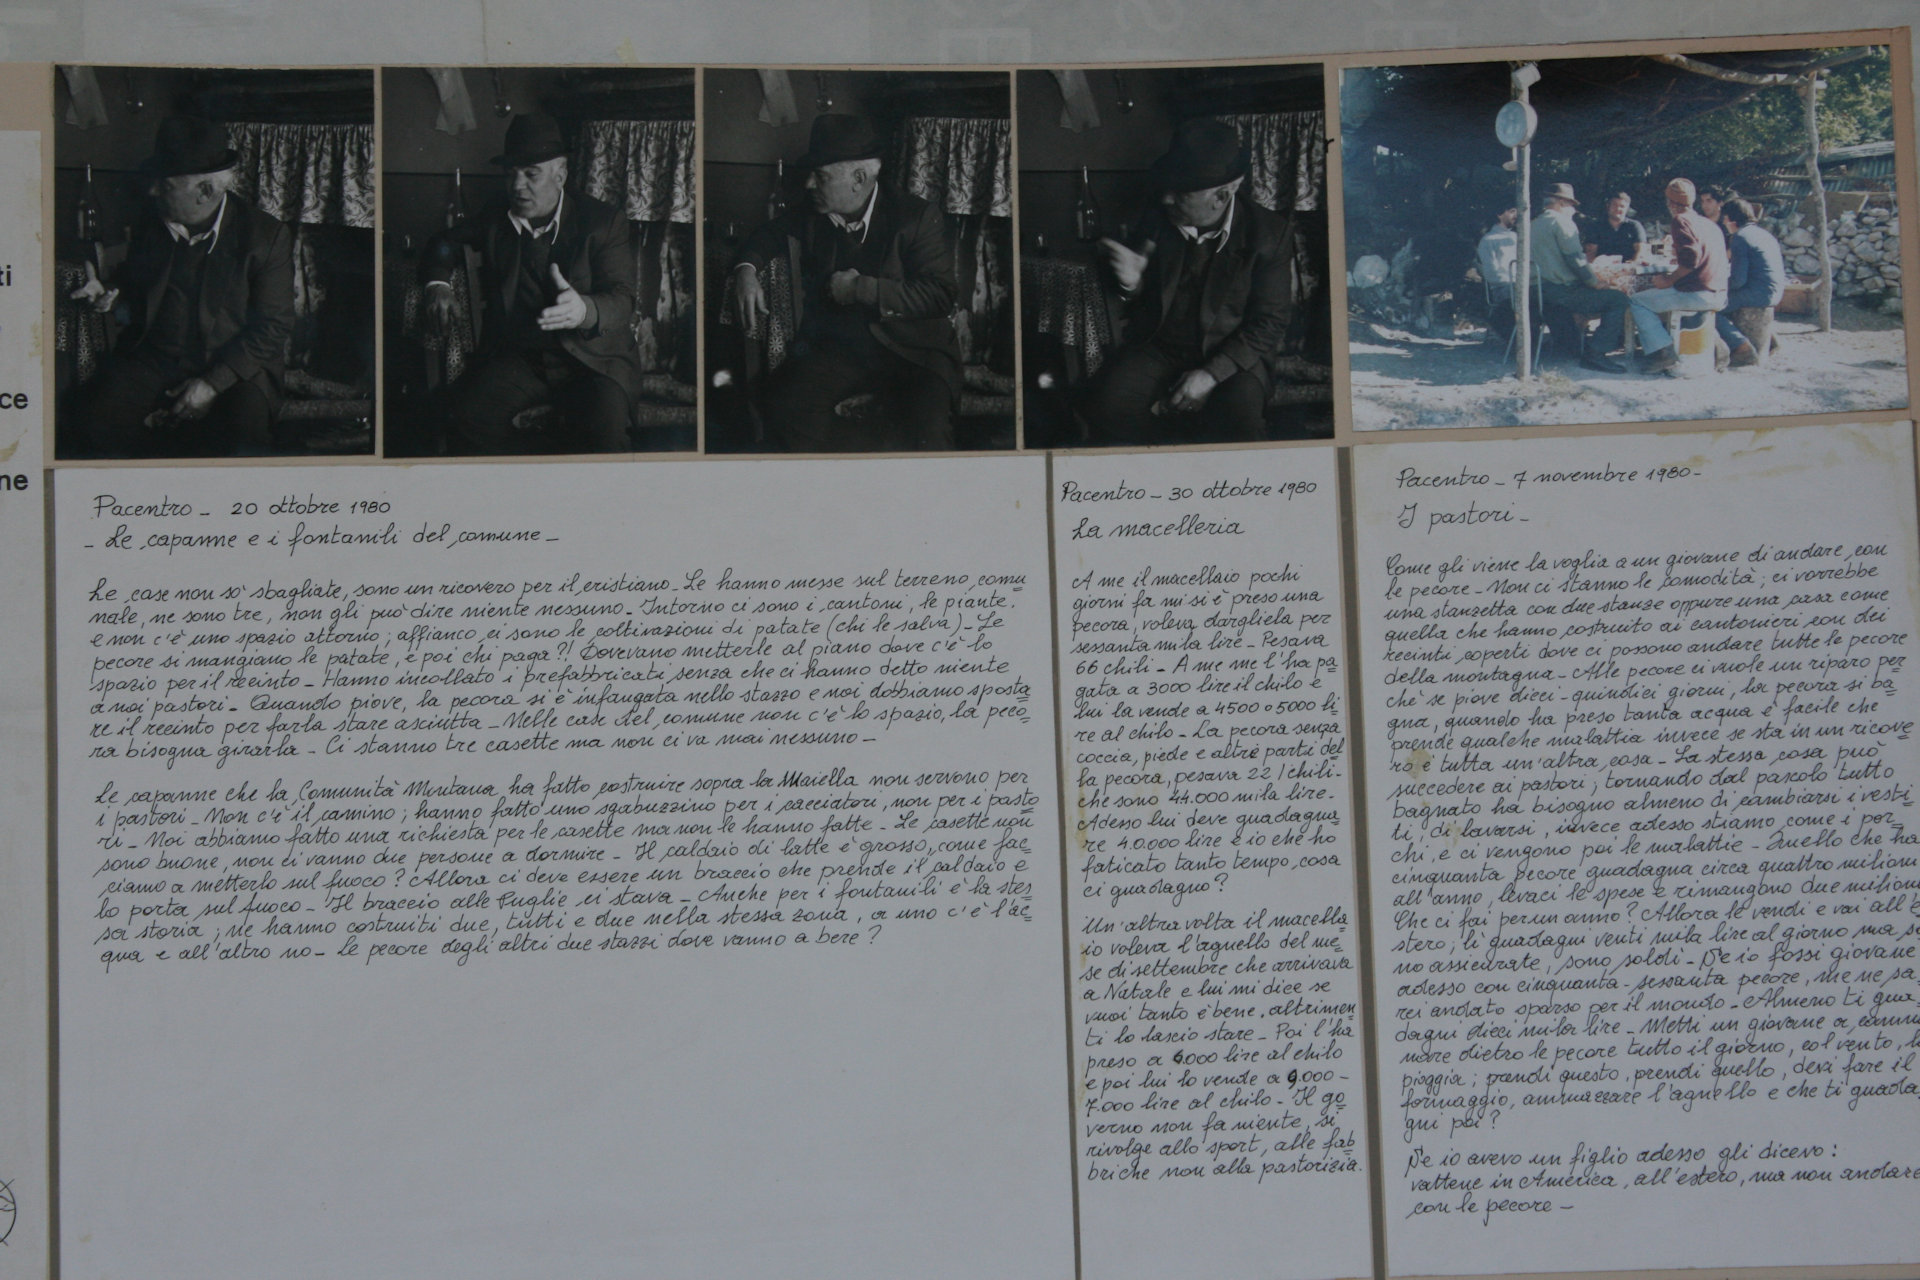 ti
ce
ne
Pacentro - 20 ottobre 1980
- Le capanne e i fontanili del comune -
Le case non so' sbagliate, sono un ricovero per il cristiano - Le hanno messe sul terreno comu
nale, ne sono tre, non gli può dire niente nessuno - Intorno ci sono i cantoni, le piante.
e non c'è uno spazio attorno; affianco ci sono le coltivazioni di patate (chi le salva) - Le
pecore si mangiano le patate, e poi chi paga?! Dovevano metterle al piano dove c'è lo
spazio per il recinto - Hanno incollato i prefabbricati senza che ci hanno detto niente
a noi pastori - Quando piove, la pecora si è infangata nello stazzo e noi dobbiamo sposta
re il recinto per farla stare asciutta - Nelle case del comune non c'è lo spazio, la peco
ra bisogna girarla - Ci stanno tre casette ma non ci va mai nessuno -
Le capanne che la Comunità Montana ha fatto costruire sopra la Maiella non servono per
i pastori - Non c'è il camino; hanno fatto uno sgabuzzino per i cacciatori, non per i pasto
ri - Noi abbiamo fatto una richiesta per le casette ma non le hanno fatte - Le casette non
sono buone, non ci vanno due persone a dormire - Il caldaio di latte è grosso, come fac
ciamo a metterlo sul fuoco? Allora ci deve essere un braccio che prende il caldaio e
lo porta sul fuoco - Il braccio alle Puglie ci stava - Anche per i fontanili è la stes
sa storia; ne hanno costruiti due, tutti e due nella stessa zona, a uno c'è l'ac
qua e all'altro no - Le pecore degli altri due stazzi dove vanno a bere?
Pacentro - 30 ottobre 1980
La macelleria
A me il macellaio pochi
giorni fa mi si è preso una
pecora, voleva dargliela per
sessanta mila lire - Pesava
66 chili - A me me l'ha pa
gata a 3000 lire il chilo e
lui la vende a 4500 o 5000 li
re al chilo - La pecora senza
coccia, piede e altre parti del
la pecora, pesava 22 chili -
che sono 44.000 mila lire -
Adesso lui deve guadagna
re 40.000 lire e io che ho
faticato tanto tempo, cosa
ci guadagno?
Un'altra volta il macella
io voleva l'agnello del me
se di settembre che arrivava
a Natale e lui mi dice se
vuoi tanto è bene, altrimen
ti lo lascio stare - Poi l'ha
preso a 6000 lire al chilo
e poi lui lo vende a 9.000 -
7.000 lire al chilo - Il go
verno non fa niente, si
rivolge allo sport, alle fab
briche non alla pastorizia.
Pacentro - 7 novembre 1980 -
I pastori -
Come gli viene la voglia a un giovane di andare con
le pecore - Non ci stanno le comodità; ci vorrebbe
una stanzetta con due stanze oppure una casa come
quella che hanno costruito ai cantonieri con dei
recinti coperti dove ci possono andare tutte le pecore
della montagna - Alle pecore ci vuole un riparo per
chè se piove dieci - quindici giorni, la pecora si ba
gna, quando ha preso tanta acqua è facile che
prende qualche malattia invece se sta in un ricove
ro è tutta un'altra cosa - La stessa cosa può
succedere ai pastori; tornando dal pascolo tutto
bagnato ha bisogno almeno di cambiarsi i vesti
ti, di lavarsi, invece adesso stiamo come i por
chi, e ci vengono poi le malattie - Quello che ha
cinquanta pecore guadagna circa quattro milioni
all'anno, levaci le spese e rimangono due milioni
Che ci fai per un anno? Allora le vendi e vai all'e
stero; li guadagni venti mila lire al giorno ma so
no assicurate, sono soldi - Se io fossi giovane
adesso con cinquanta - sessanta pecore, me ne sa
rei andato sparso per il mondo - Almeno ti gua
dagni dieci mila lire - Metti un giovane a cammi
nare dietro le pecore tutto il giorno, col vento, la
pioggia; prendi questo, prendi quello, devi fare il
formaggio, ammazzare l'agnello e che ti guada
gni poi?
Se io avevo un figlio adesso gli dicevo:
vattene in America, all'estero, ma non andare
con le pecore -